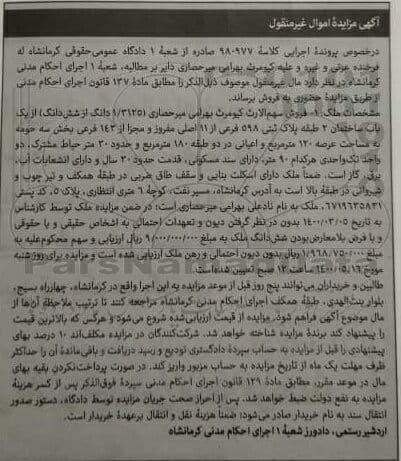 آگهی مزایدهٔ اموال غیرمنقول
درخصوص پروندهٔ اجرایی کلاسهٔ ۹۸۰۹۷۷ صادره از شعبهٔ ۱ دادگاه عمومی‌حقوقی کرمانشاه له
فرخنده عزتی و غیره و علیه کیومرث بهرامی میرحصاری دایر بر مطالبه، شعبهٔ ۱ اجرای احکام مدنی
کرمانشاه در نظر دارد مال غیرمنقول موصوف ذیل‌الذکر را مطابق مادهٔ ۱۳۷ قانون اجرای احکام مدنی
از طریق مزایدهٔ حضوری به فروش برساند.
مشخصات ملک: ۱- فروش سهم‌الارث کیومرث بهرامی میرحصاری (۱/۳۱۲۵ دانگ از شش‌دانگ) از یک
باب ساختمان ۲ طبقه پلاک ثبتی ۵۹۸ فرعی از ۱۱ اصلی مفروز و مجزا از ۱۴۳ فرعی بخش سه حومه
به مساحت عرصه ۱۲۰ مترمربع و اعیانی در دو طبقه ۱۸۰ مترمربع و حدود ۳۰ متر حیاط مشترک، دو
واحد تک‌واحدی هرکدام ۹۰ متر، دارای سند مسکونی، قدمت حدود ۳۰ سال و دارای انشعابات آب،
برق، گاز است. ضمناً ملک دارای اسکلت بنایی و سقف طاق ضربی در طبقهٔ همکف و تیر چوب و
شیروانی در طبقهٔ بالا است به آدرس کرمانشاه، مسیر نفت، کوچهٔ ۶ متری انتظاری، پلاک ۵، کد پستی
۶۷۱۹۶۳۵۸۳۱. ملک به نام نادعلی بهرامی میرحصاری است؛ در ضمن مزایده ملک توسط کارشناس
به تاریخ ۱۴۰۰/۰۳/۰۵ بدون در نظر گرفتن دیون و تعهدات احتمالی به اشخاص حقیقی و یا حقوقی
و با فرض بلامعارض‌بودن شش‌دانگ ملک به مبلغ ۹/۰۰۰/۰۰۰/۰۰۰ ریال ارزیابی و سهم محکوم‌علیه به
مبلغ ۱/۹۶۸/۷۵۰/۰۰۰ ریال بدون دیون احتمالی و رهن ملک ارزیابی شده است و مزایده برای روز شنبه
مورخ ۱۴۰۰/۰۵/۱۶ ساعت ۱۲ صبح تعیین شده است.
طالبین و خریداران می‌توانند پنج روز قبل از موعد مزایده به این اجرا واقع در کرمانشاه، چهارراه بسیج،
بلوار بنت‌الهدی، طبقهٔ همکف اجرای احکام مدنی کرمانشاه مراجعه کنند تا ترتیب ملاحظهٔ آن‌ها از
مال موضوع آگهی فراهم شود. مزایده از قیمت ارزیابی‌شده شروع می‌شود و هرکس که بالاترین قیمت
را پیشنهاد کند برندهٔ مزایده شناخته خواهد شد. شرکت‌کنندگان در مزایده مکلف‌اند ۱۰ درصد بهای
پیشنهادی را قبل از مزایده به حساب سپردهٔ دادگستری تودیع و رسید دریافت و باقی‌ماندهٔ آن را حداکثر
ظرف مهلت یک ماه از تاریخ مزایده به حساب مزبور واریز کند. در صورت پرداخت‌نکردن بقیه بهای
مال در موعد مقرر، مطابق مادهٔ ۱۲۹ قانون اجرای احکام مدنی سپردهٔ فوق‌الذکر پس از کسر هزینهٔ
مزایده به نفع دولت ضبط خواهد شد. پس از احراز صحت جریان مزایده توسط دادگاه، دستور صدور
انتقال سند به نام خریدار صادر می‌شود؛ ضمناً هزینهٔ نقل و انتقال برعهدهٔ خریدار است.
اردشیر رستمی، دادورز شعبهٔ ۱ اجرای احکام مدنی کرمانشاه